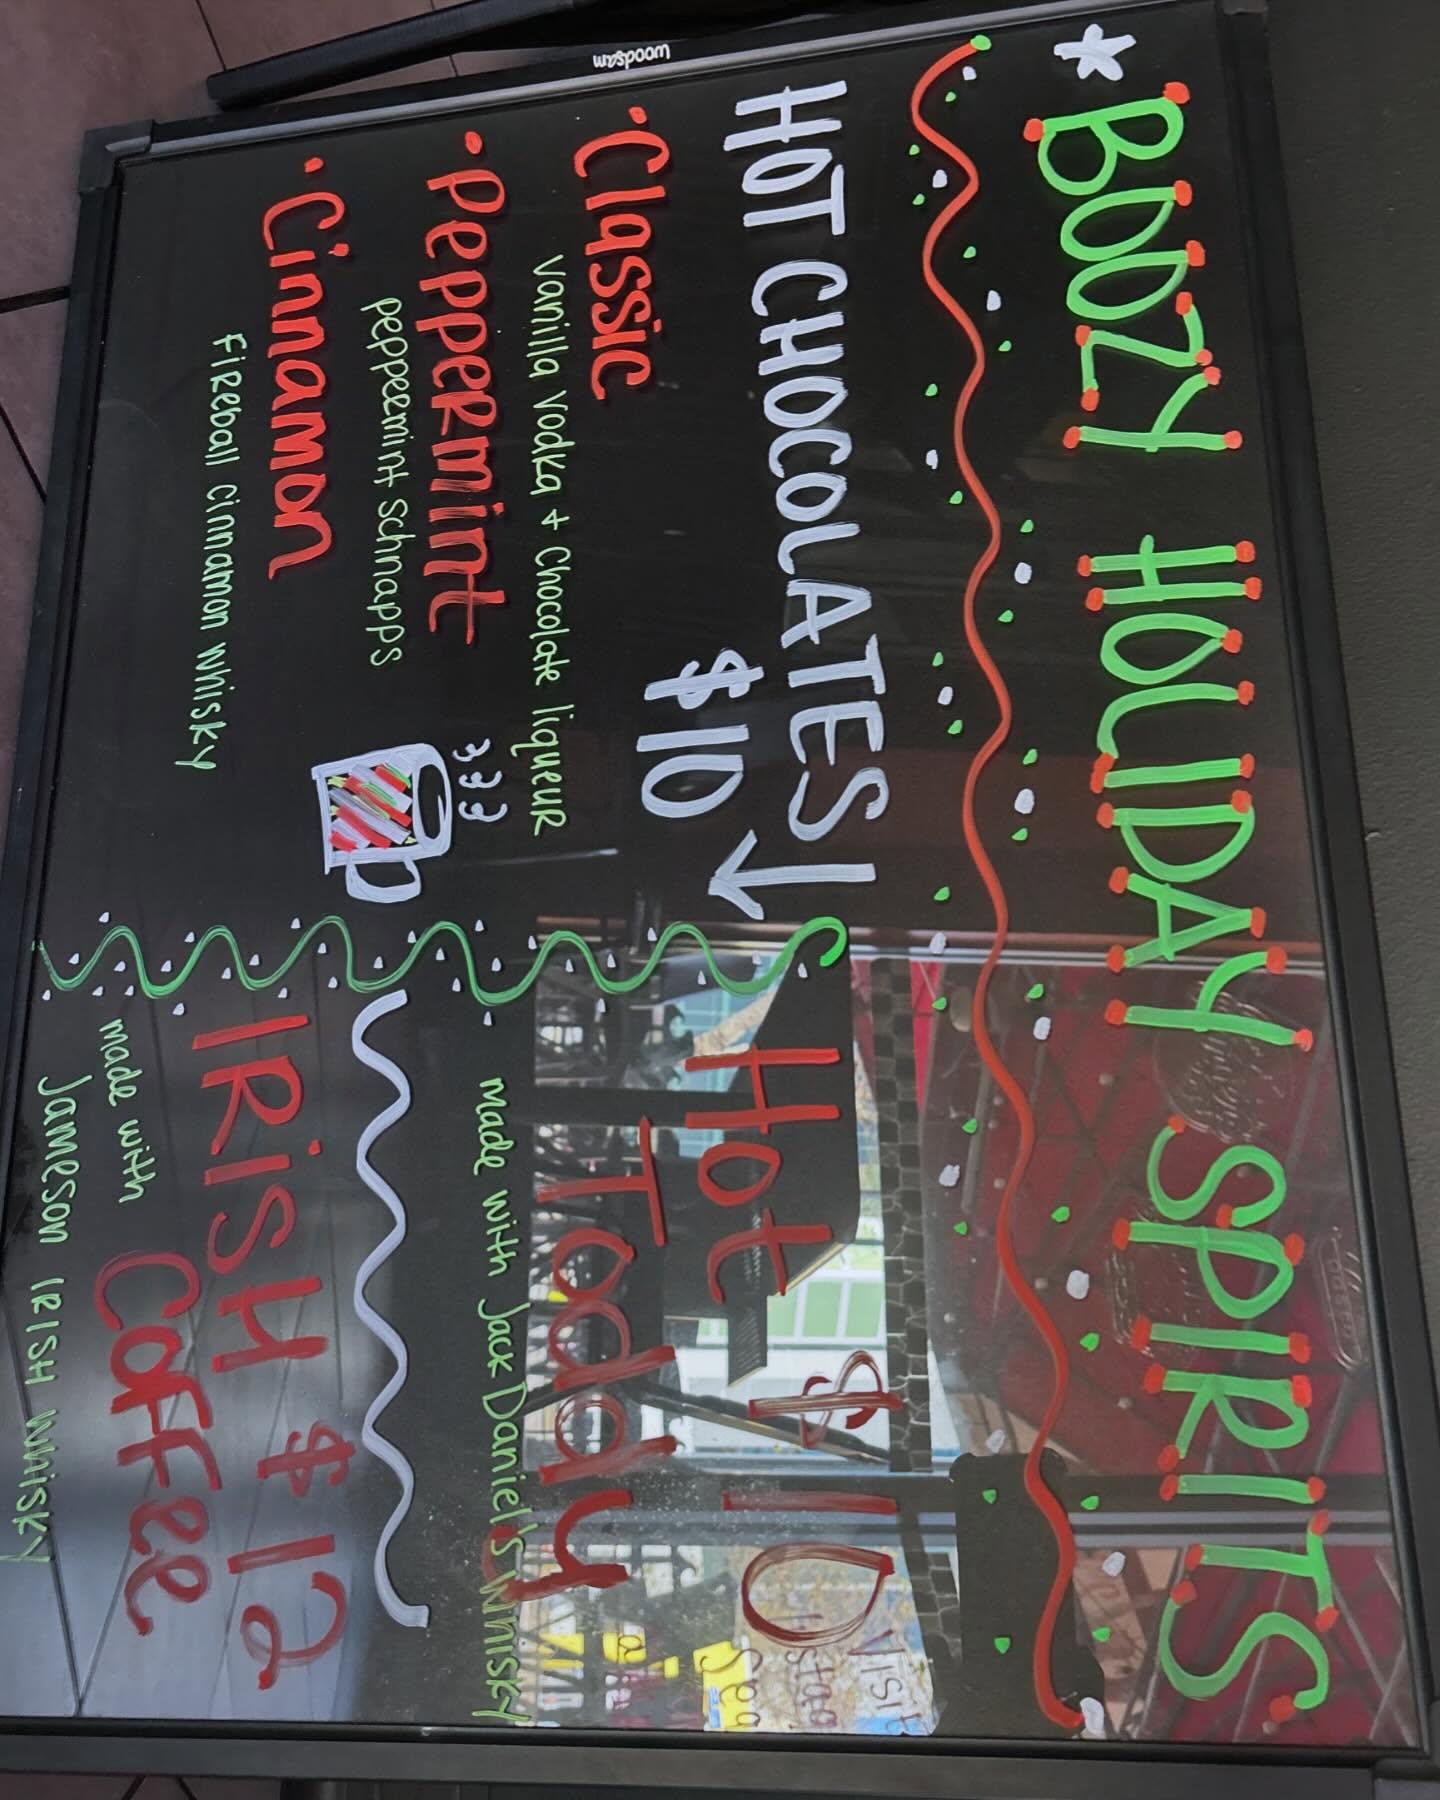 woodsam
BOOZY HOLIDAY SPIRITS
HOT CHOCOLATES
$10
• Classic
vanilla vodka + chocolate liqueur
• Peppermint
peppermint schnapps
• Cinnamon
Fireball cinnamon whisky
Hot $10
Toddy
made with Jack Daniel's whisky
IRISH $12
Coffee
made with
Jameson IRISH whisky